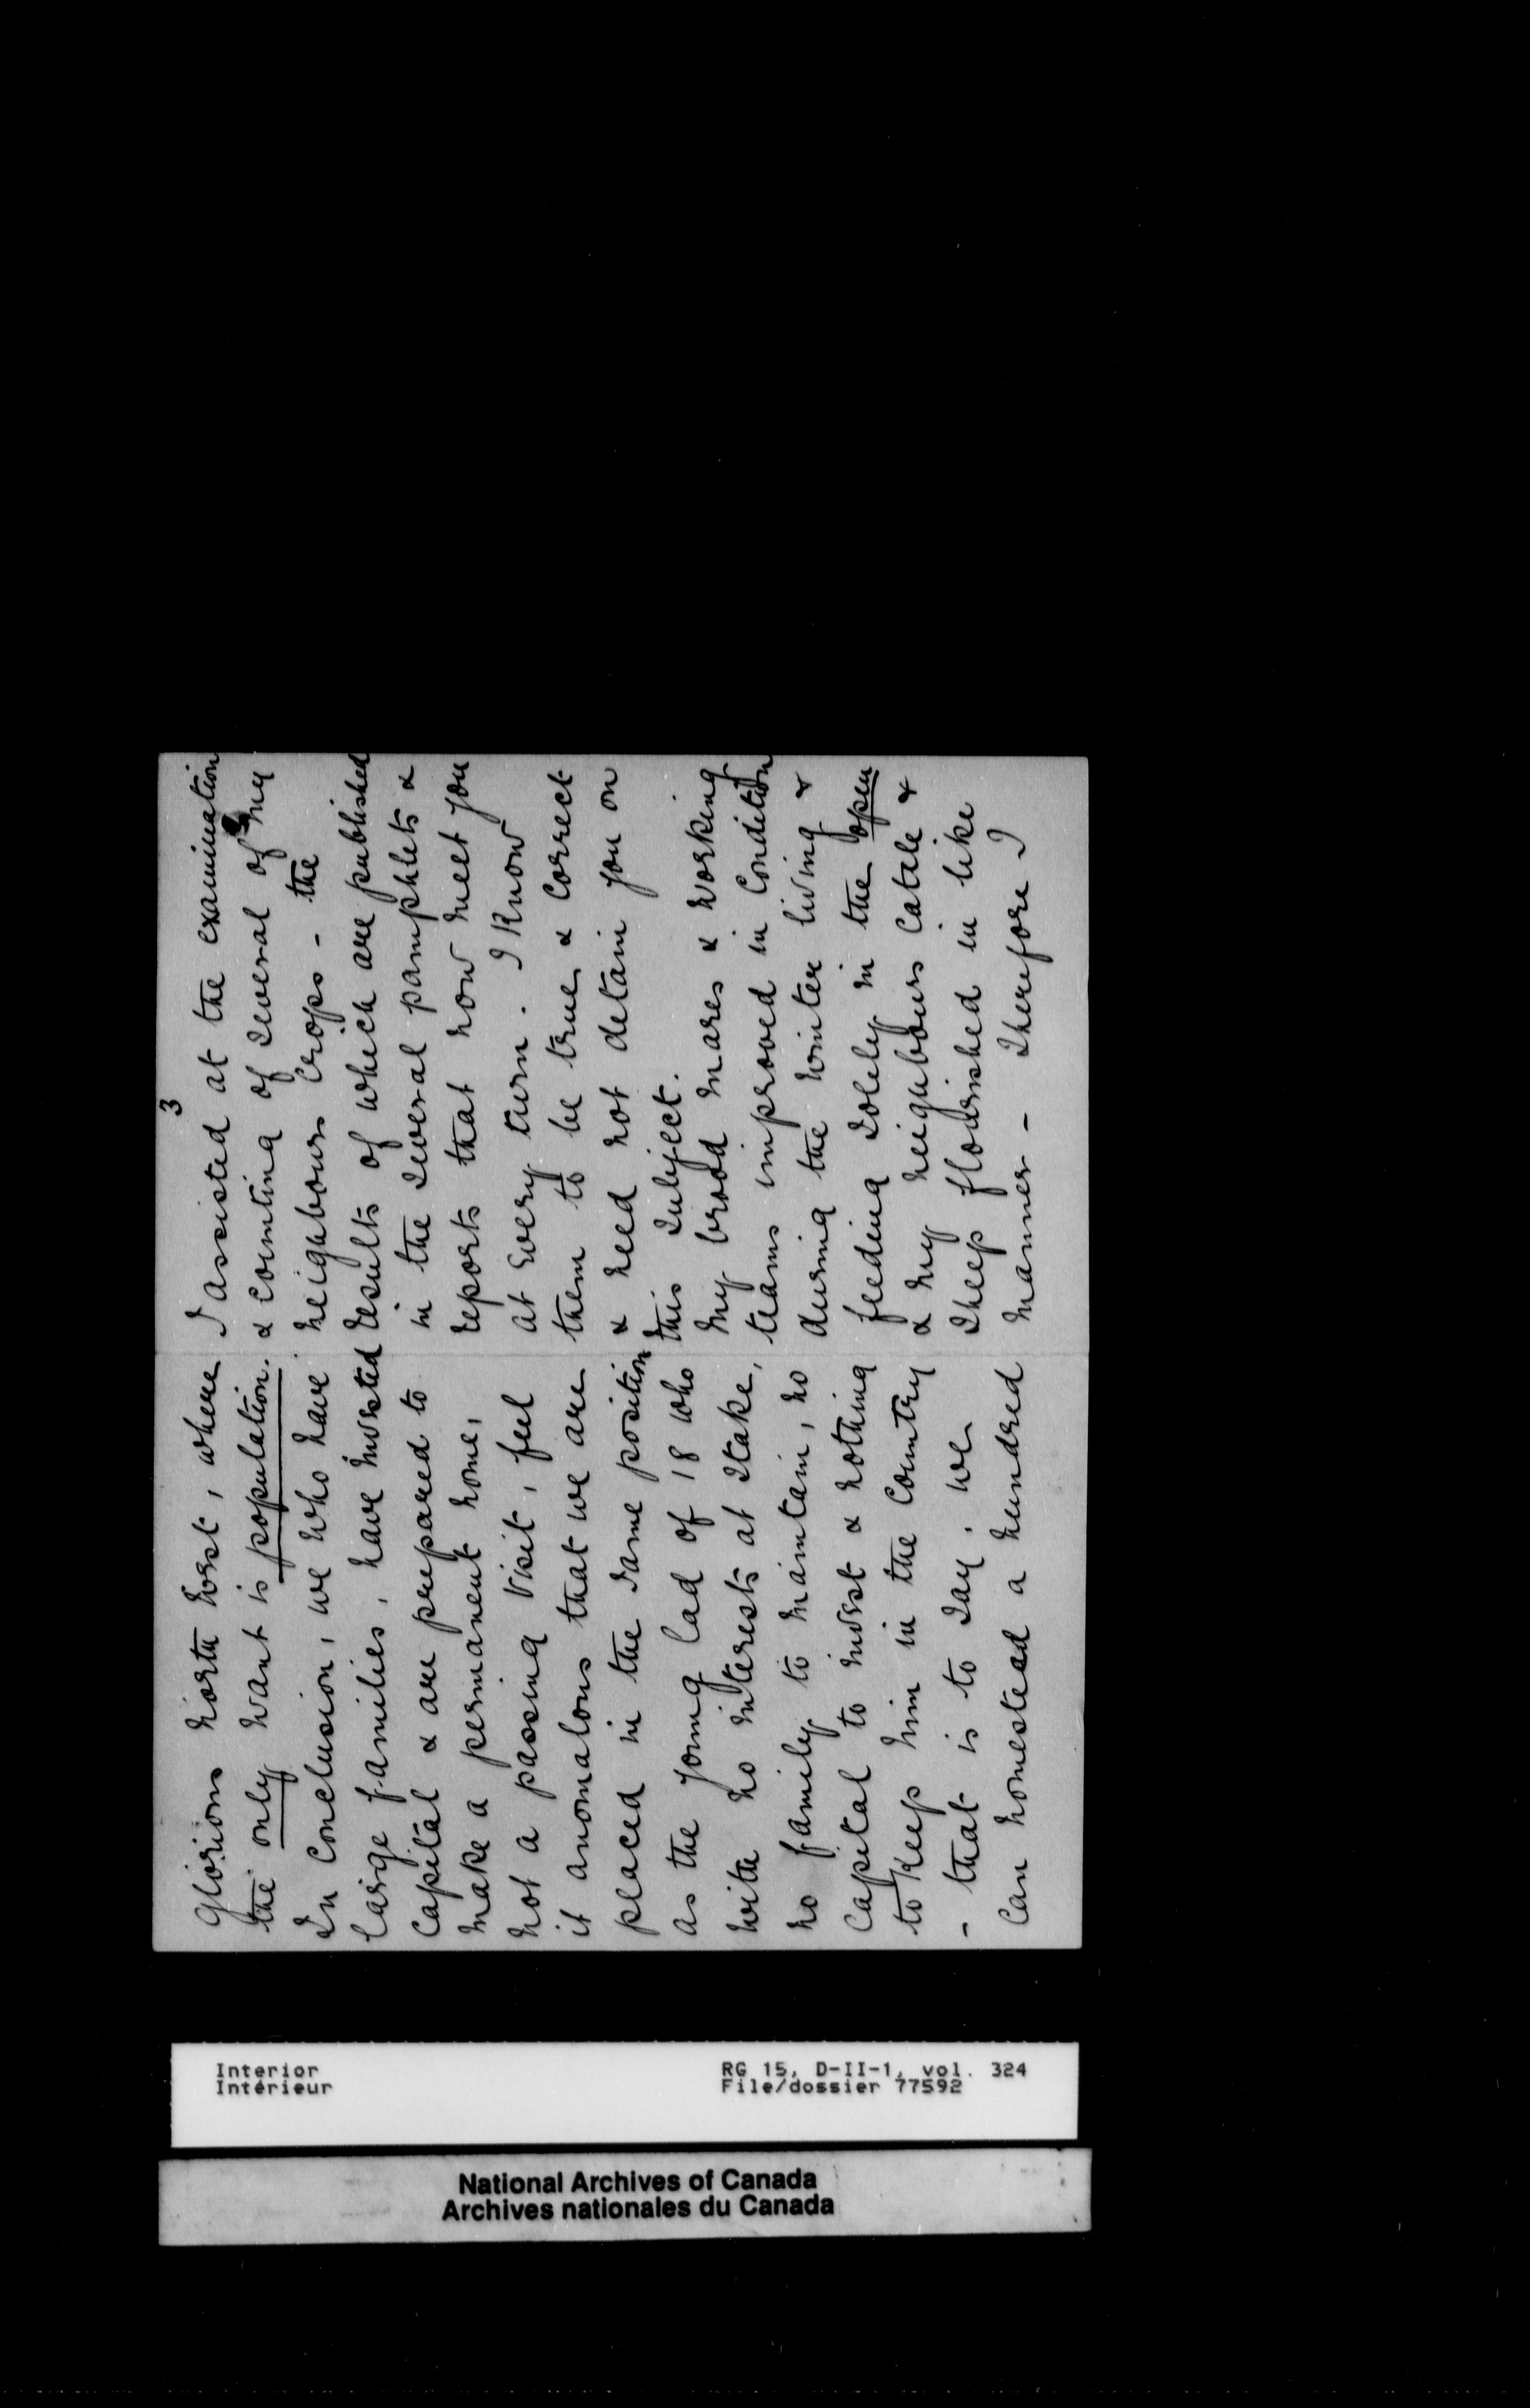 Glorious North West, where
the only want is population.
In conclusion, we who have
large families, have invested
capital & are prepared to
make a permanent home,
not a passing visit, feel
it anomalous that we are
placed in the same position
as the young lad of 18 who
with no interests at stake,
no family to maintain, no
capital to invest & nothing
to keep him in the country
- that is to say. we
can homestead a hundred
3
I assisted at the examination
& counting of several of my
neighbours crops - the
results of which are published
in the several pamphlets &
reports that now meet you
at every turn. I know
them to be true & correct
& need not detain you on
this subject.
My brood mares & working
teams improved in condition
during the winter living &
feeding solely in the open
& my neighbours cattle &
sheep flourished in like
manner - Therefore I
Interior
Intérieur
RG 15, D-II-1, vol. 324
File/dossier 77592
National Archives of Canada
Archives nationales du Canada